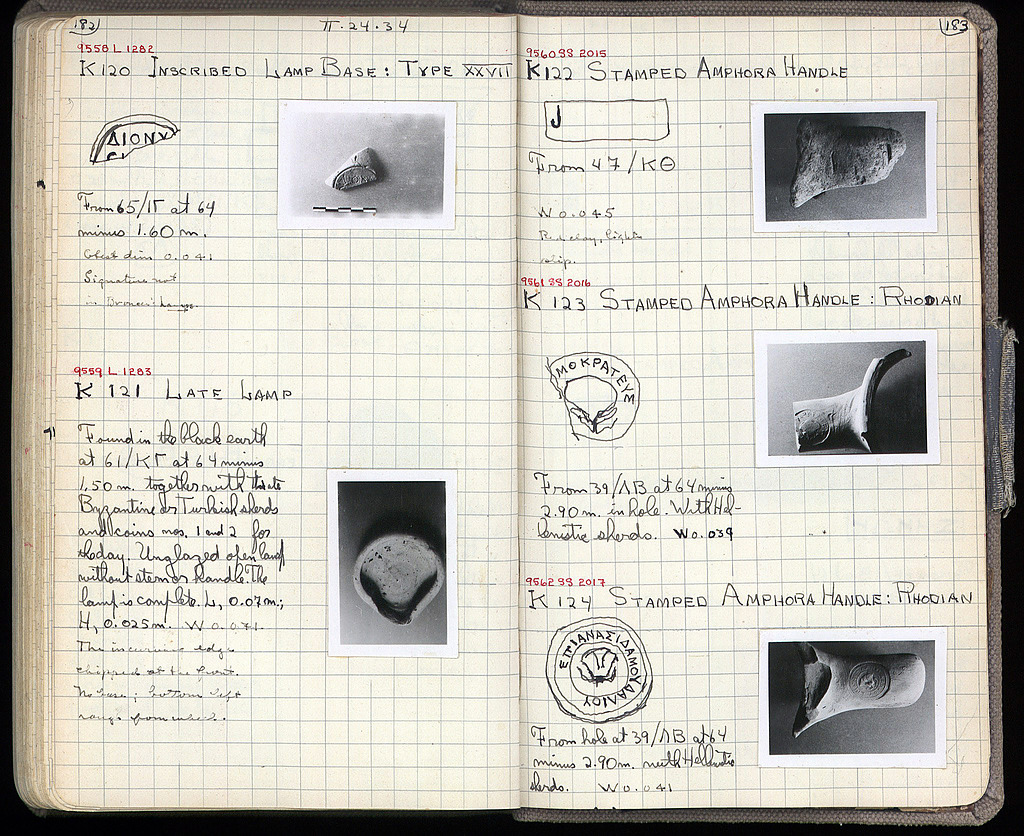 182
π·24·34
9558 L 1282
K120 INSCRIBED LAMP BASE: TYPE XXVII
ΔΙΟΝΥ
CI
From 65/ΙΓ at 64
minus 1.60 m.
Gtest dim 0.041
Signature not
in Broneer
9559 L 1283
K 121 LATE LAMP
Found in the black earth
at 61/ΚΓ at 64 minus
1.50 m. together with
Byzantine or Turkish sherds
and coins nos. 1 and 2 for
the day. Unglazed open lamp
without stem or handle. The
lamp is complete. L, 0.07m;
H, 0.025m. W 0.071.
The incurving edge
chipped at the front.
No base; bottom left
rough from wheel.
183
9560 SS 2015
K122 STAMPED AMPHORA HANDLE
J
From 47/ΚΘ
W 0.045
Red clay, light
slip.
9561 SS 2016
K 123 STAMPED AMPHORA HANDLE: RHODIAN
ΜΟΚΡΑΤΕΥΣ
From 39/ΛΒ at 64 minus
2.90 m. in hole. With Hel-
lenistic sherds. W 0.039
9562 SS 2017
K 124 STAMPED AMPHORA HANDLE: RHODIAN
ΕΠΙΑΝΑΞΙΔΑΜΟΥΔΑΛΙΟΥ
From hole at 39/ΛΒ at 64
minus 2.90 m. with Hellenistic
sherds. W 0.041